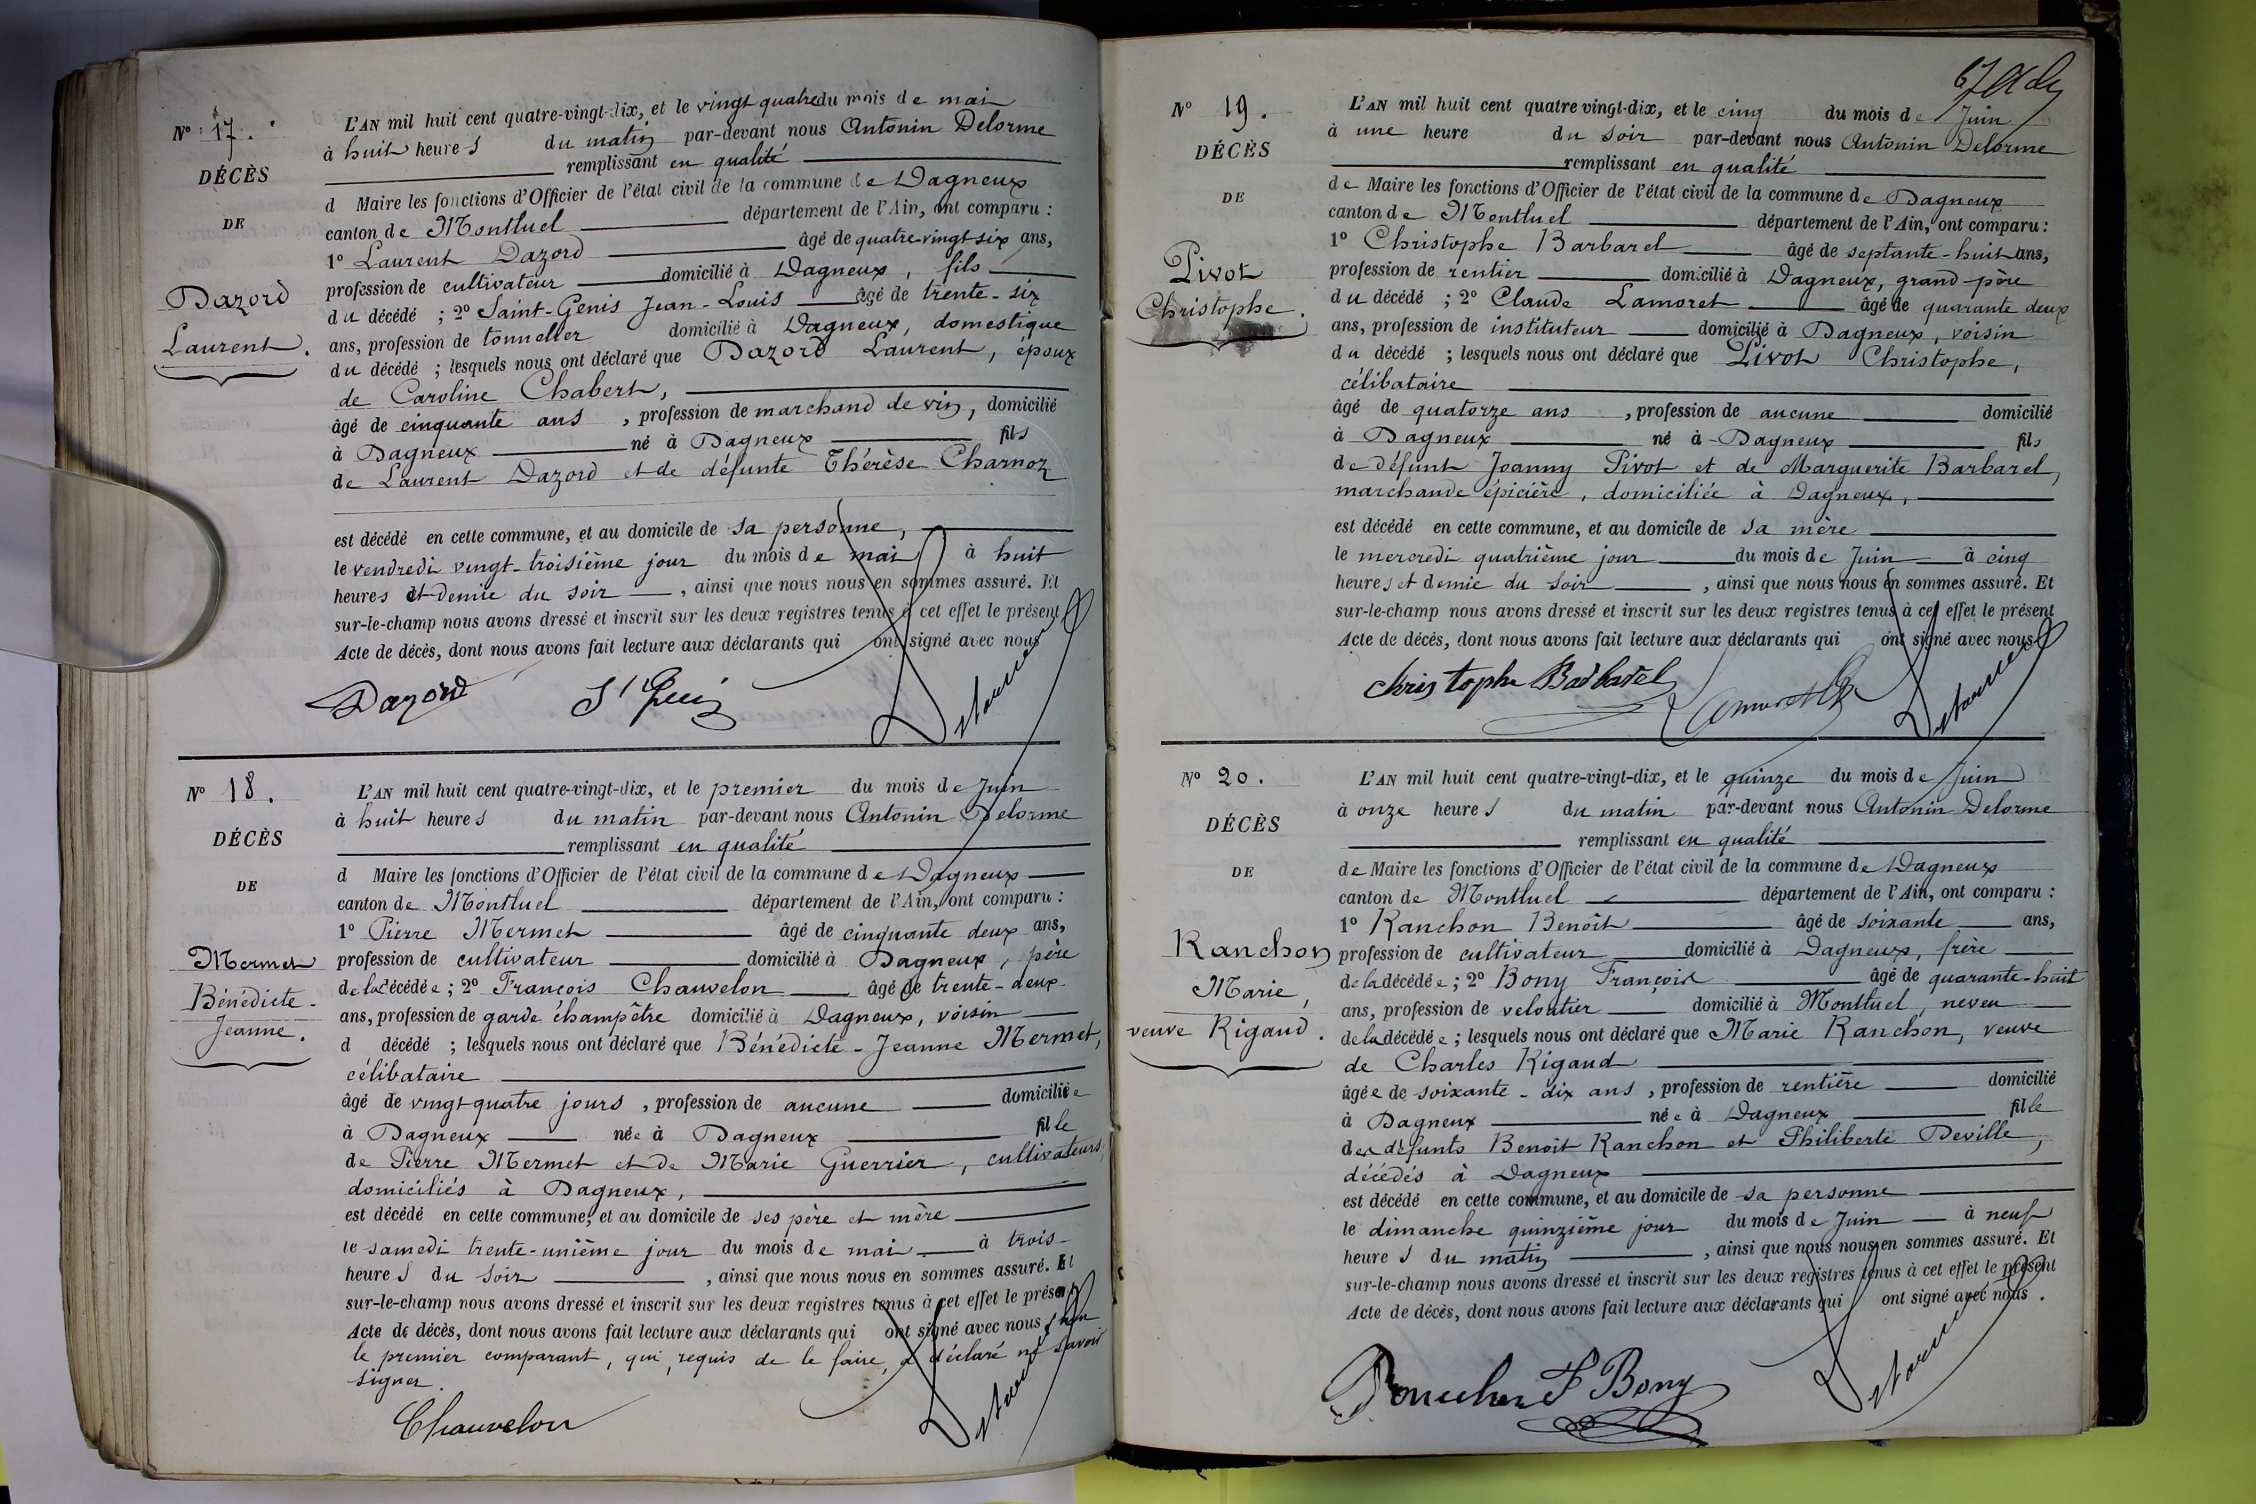 N° 17.
DÉCÈS
DE
Dazord
Laurent.
L'AN mil huit cent quatre-vingt-dix, et le vingt quatre du mois de mai
à huit heures du matin par-devant nous Antonin Delorme
remplissant en qualité
d Maire les fonctions d'Officier de l'état civil de la commune de Dagneux
canton de Montluel département de l'Ain, ont comparu :
1° Laurent Dazord âgé de quatre-vingt six ans,
profession de cultivateur domicilié à Dagneux, fils
du décédé ; 2° Saint-Genis Jean-Louis âgé de trente-six
ans, profession de tonnelier domicilié à Dagneux, domestique
du décédé ; lesquels nous ont déclaré que Dazord Laurent, époux
de Caroline Chabert,
âgé de cinquante ans, profession de marchand de vin, domicilié
à Dagneux né à Dagneux fils
de Laurent Dazord et de défunte Thérèse Charnoz
est décédé en cette commune, et au domicile de sa personne,
le vendredi vingt-troisième jour du mois de mai à huit
heures et demie du soir, ainsi que nous nous en sommes assuré. Et
sur-le-champ nous avons dressé et inscrit sur les deux registres tenus à cet effet le présent
Acte de décès, dont nous avons fait lecture aux déclarants qui ont signé avec nous
Dazord
N° 18.
DÉCÈS
DE
Mermet
Bénédicte-
Jeanne.
L'AN mil huit cent quatre-vingt-dix, et le premier du mois de Juin
à huit heures du matin par-devant nous Antonin Delorme
remplissant en qualité
d Maire les fonctions d'Officier de l'état civil de la commune de Dagneux
canton de Montluel département de l'Ain, ont comparu :
1° Pierre Mermet âgé de cinquante deux ans,
profession de cultivateur domicilié à Dagneux, père
de la décédée ; 2° François Chauvelon âgé de trente-deux
ans, profession de garde champêtre domicilié à Dagneux, voisin
d décédé ; lesquels nous ont déclaré que Bénédicte-Jeanne Mermet,
célibataire
âgé de vingt-quatre jours, profession de aucune domiciliée
à Dagneux née à Dagneux fille
de Pierre Mermet et de Marie Guerrier, cultivateurs,
domiciliés à Dagneux,
est décédé en cette commune, et au domicile de ses père et mère
le samedi trente-unième jour du mois de mai à trois
heures du soir, ainsi que nous nous en sommes assuré. Et
sur-le-champ nous avons dressé et inscrit sur les deux registres tenus à cet effet le présent
Acte de décès, dont nous avons fait lecture aux déclarants qui ont signé avec nous,
le premier comparant, qui, requis de le faire, a déclaré ne savoir
signer.
Chauvelon
N° 19.
DÉCÈS
DE
Pivot
Christophe.
L'AN mil huit cent quatre vingt-dix, et le cinq du mois de Juin
à une heure du soir par-devant nous Antonin Delorme
remplissant en qualité
de Maire les fonctions d'Officier de l'état civil de la commune de Dagneux
canton de Montluel département de l'Ain, ont comparu :
1° Christophe Barbarel âgé de septante-huit ans,
profession de rentier domicilié à Dagneux, grand-père
du décédé ; 2° Claude Lamoret âgé de quarante deux
ans, profession de instituteur domicilié à Dagneux, voisin
du décédé ; lesquels nous ont déclaré que Pivot Christophe,
célibataire
âgé de quatorze ans, profession de aucune domicilié
à Dagneux né à Dagneux fils
de défunt Joanny Pivot et de Marguerite Barbarel,
marchande épicière, domiciliée à Dagneux,
est décédé en cette commune, et au domicile de sa mère
le mercredi quatrième jour du mois de Juin à cinq
heures et demie du soir, ainsi que nous nous en sommes assuré. Et
sur-le-champ nous avons dressé et inscrit sur les deux registres tenus à cet effet le présent
Acte de décès, dont nous avons fait lecture aux déclarants qui ont signé avec nous
christophe Barbarel
N° 20.
DÉCÈS
DE
Ranchon
Marie,
veuve Rigaud.
L'AN mil huit cent quatre-vingt-dix, et le quinze du mois de Juin
à onze heures du matin par-devant nous Antonin Delorme
remplissant en qualité
de Maire les fonctions d'Officier de l'état civil de la commune de Dagneux
canton de Montluel département de l'Ain, ont comparu :
1° Ranchon Benoît âgé de soixante ans,
profession de cultivateur domicilié à Dagneux, frère
de la décédée ; 2° Bony François âgé de quarante-huit
ans, profession de veloutier domicilié à Montluel, neveu
de la décédée ; lesquels nous ont déclaré que Marie Ranchon, veuve
de Charles Rigaud
âgée de soixante-dix ans, profession de rentière domicilié
à Dagneux née à Dagneux fille
des défunts Benoît Ranchon et Philiberte Deville,
décédés à Dagneux
est décédé en cette commune, et au domicile de sa personne
le dimanche quinzième jour du mois de Juin à neuf
heures du matin, ainsi que nous nous en sommes assuré. Et
sur-le-champ nous avons dressé et inscrit sur les deux registres tenus à cet effet le présent
Acte de décès, dont nous avons fait lecture aux déclarants qui ont signé avec nous.
F Bony